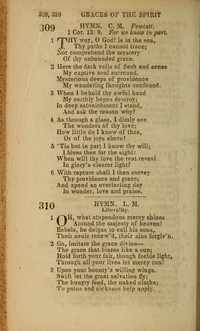 309, 310 GRACES OF THE SPIRIT
309 HYMN. C. M. Fawcett.
1 Cor. 13: 9. For we know in part.
1 THY way, O God! is in the sea,
Thy paths I cannot trace;
Nor comprehend the mystery
Of thy unbounded grace.
2 Here the dark veils of flesh and sense
My captive soul surround,
Mysterious deeps of providence
My wandering thoughts confound.
3 When I behold thy awful hand
My earthly hopes destroy;
In deep astonishment I stand,
And ask the reason why?
4 As through a glass, I dimly see
The wonders of thy love;
How little do I know of thee,
Or of the joys above!
5 'Tis but in part I know thy will;
I bless thee for the sight:
When will thy love the rest reveal
In glory's clearer light?
6 With rapture shall I then survey
Thy providence and grace;
And spend an everlasting day
In wonder, love and praise.
310 HYMN. L. M.
Liberality.
1 OH, what stupendous mercy shines
Around the majesty of heaven!
Rebels, he deigns to call his sons,
Their souls renew'd, their sins forgiv'n.
2 Go, imitate the grace divine—
The grace that blazes like a sun;
Hold forth your fair, though feeble light,
Through all your lives let mercy run.
3 Upon your bounty's willing wings
Swift let the great salvation fly;
The hungry feed, the naked clothe;
To pains and sickness help apply.